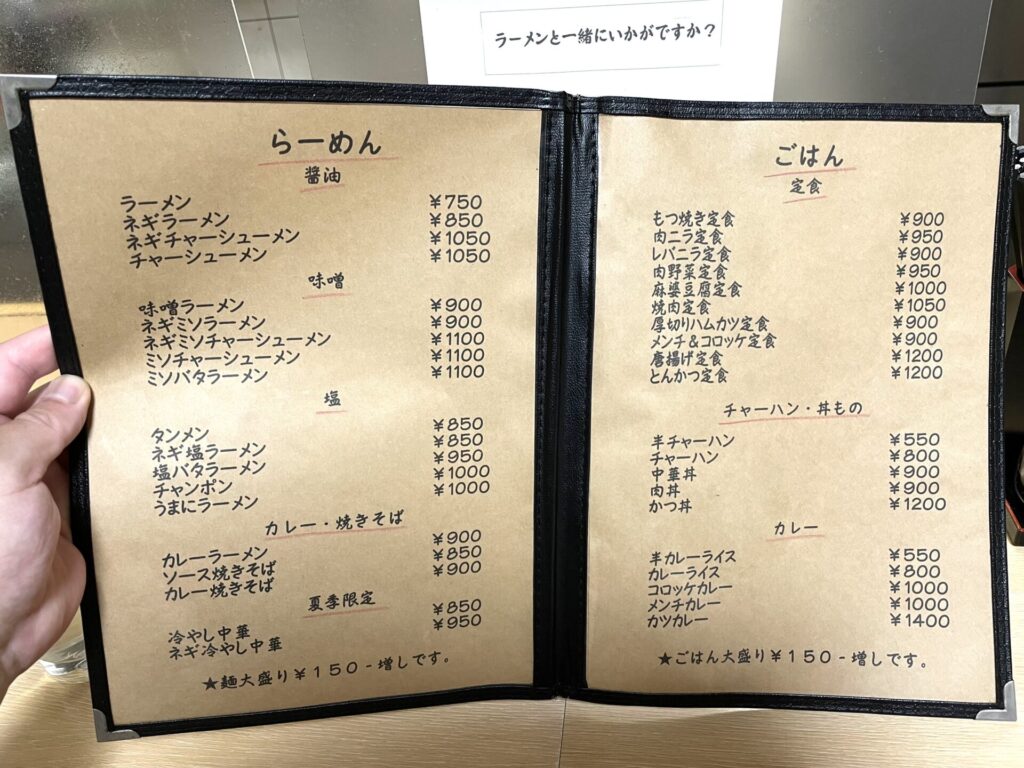 ラーメンと一緒にいかがですか？
らーめん
醤油
ラーメン ￥750
ネギラーメン ￥850
ネギチャーシューメン ￥1050
チャーシューメン ￥1050
味噌
味噌ラーメン ￥900
ネギミソラーメン ￥900
ネギミソチャーシューメン ￥1100
ミソチャーシューメン ￥1100
ミソバタラーメン ￥1100
塩
タンメン ￥850
ネギ塩ラーメン ￥850
塩バタラーメン ￥950
チャンポン ￥1000
うまにラーメン ￥1000
カレー・焼きそば
カレーラーメン ￥900
ソース焼きそば ￥850
カレー焼きそば ￥900
夏季限定
冷やし中華 ￥850
ネギ冷やし中華 ￥950
★麺大盛り￥150-増しです。
ごはん
定食
もつ焼き定食 ￥900
肉ニラ定食 ￥950
レバニラ定食 ￥900
肉野菜定食 ￥950
麻婆豆腐定食 ￥1000
焼肉定食 ￥1050
厚切りハムカツ定食 ￥900
メンチ＆コロッケ定食 ￥900
唐揚げ定食 ￥1200
とんかつ定食 ￥1200
チャーハン・丼もの
半チャーハン ￥550
チャーハン ￥800
中華丼 ￥900
肉丼 ￥900
かつ丼 ￥1200
カレー
半カレーライス ￥550
カレーライス ￥800
コロッケカレー ￥1000
メンチカレー ￥1000
カツカレー ￥1400
★ごはん大盛り￥150-増しです。